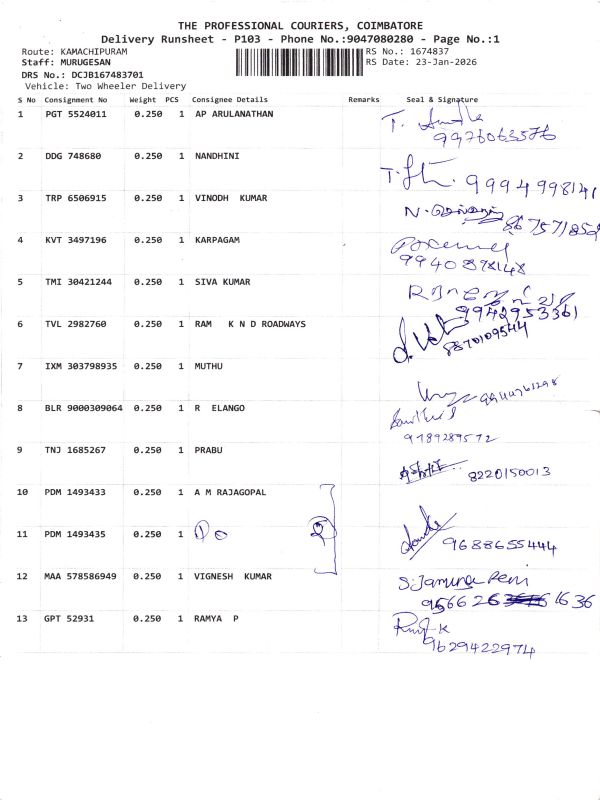 THE PROFESSIONAL COURIERS, COIMBATORE
Delivery Runsheet - P103 - Phone No.:9047080280 - Page No.:1
Route: KAMACHIPURAM
RS No.: 1674837
Staff: MURUGESAN
RS Date: 23-Jan-2026
DRS No.: DCJB167483701
Vehicle: Two Wheeler Delivery
S No Consignment No Weight PCS Consignee Details Remarks Seal & Signature
1 PGT 5524011 0.250 1 AP ARULANATHAN
2 DDG 748680 0.250 1 NANDHINI
9994998141
3 TRP 6506915 0.250 1 VINODH KUMAR
4 KVT 3497196 0.250 1 KARPAGAM
9940898148
5 TMI 30421244 0.250 1 SIVA KUMAR
9942953361
6 TVL 2982760 0.250 1 RAM K N D ROADWAYS
8870109544
7 IXM 303798935 0.250 1 MUTHU
8 BLR 9000309064 0.250 1 R ELANGO
9789289572
9 TNJ 1685267 0.250 1 PRABU
8220150013
10 PDM 1493433 0.250 1 A M RAJAGOPAL
11 PDM 1493435 0.250 1 Do 2
9688655444
12 MAA 578586949 0.250 1 VIGNESH KUMAR
S. Jamuna Rani
13 GPT 52931 0.250 1 RAMYA P
9629422974